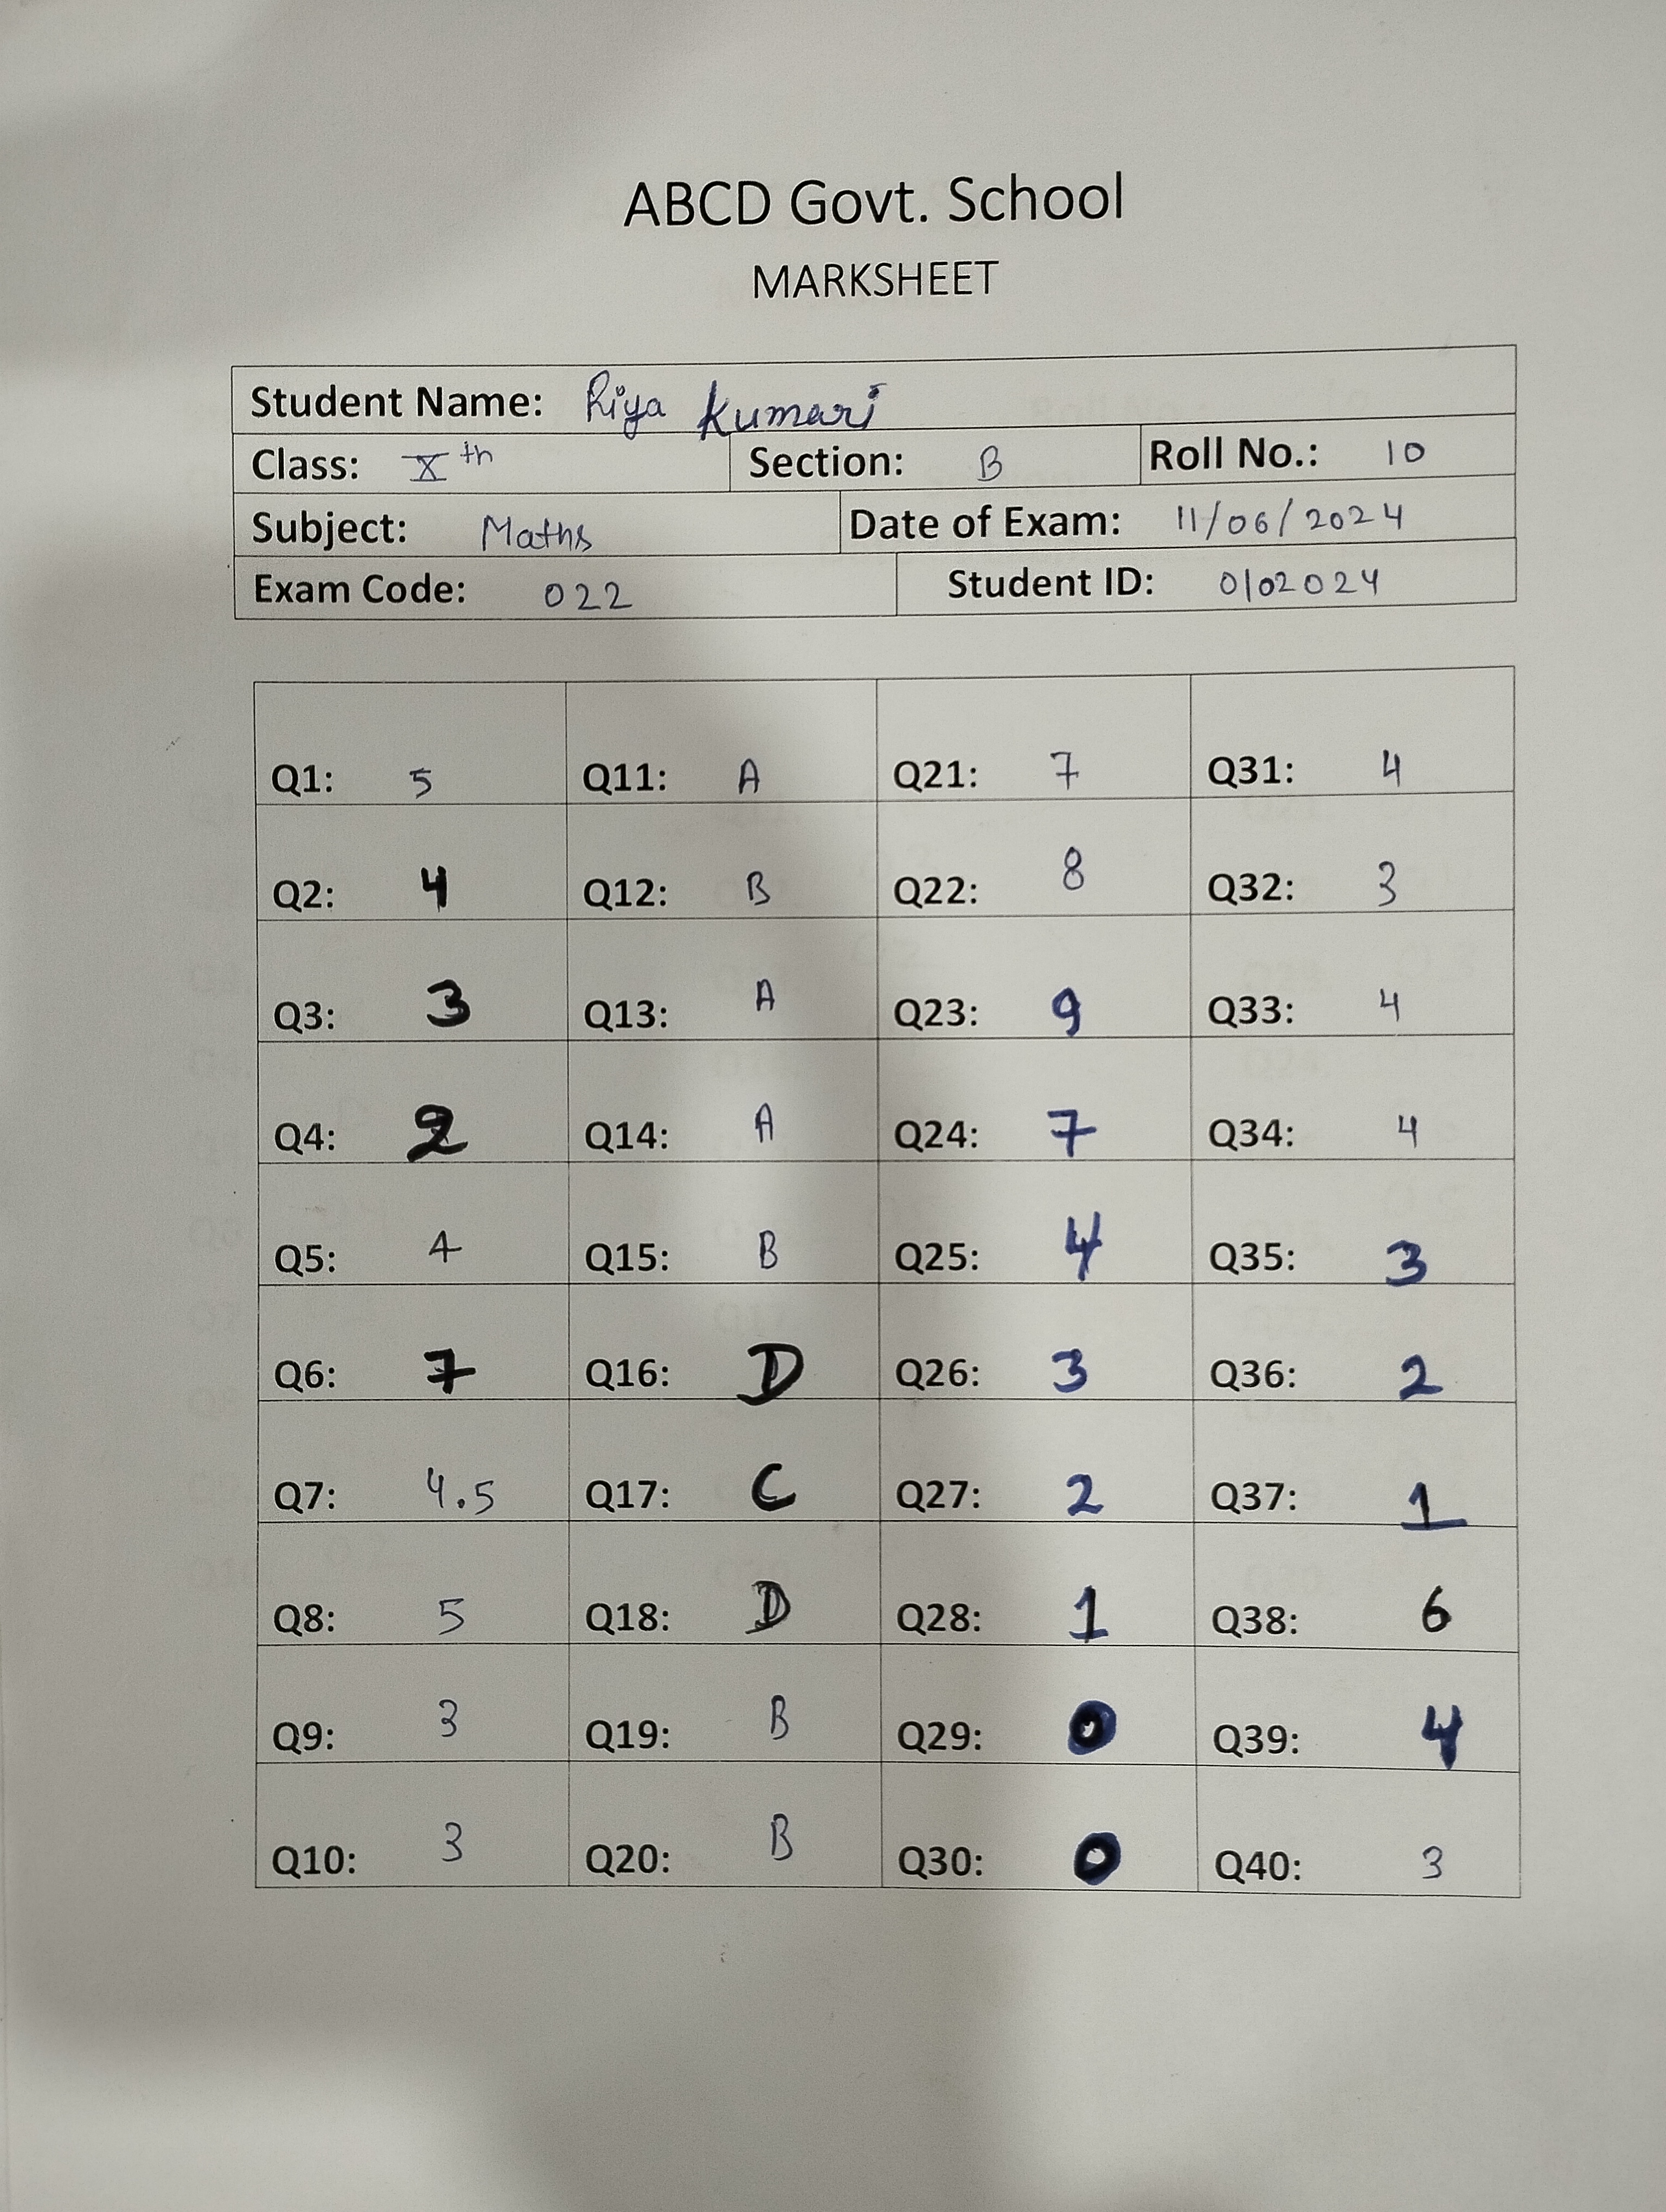 ABCD Govt. School
MARKSHEET
Student Name: Riya Kumari
Class: Xth Section: B Roll No.: 10
Subject: Maths Date of Exam: 11/06/2024
Exam Code: 022 Student ID: 0102024
Q1: 5 Q11: A Q21: 7 Q31: 4
Q2: 4 Q12: B Q22: 8 Q32: 3
Q3: 3 Q13: A Q23: 9 Q33: 4
Q4: 2 Q14: A Q24: 7 Q34: 4
Q5: 4 Q15: B Q25: 4 Q35: 3
Q6: 7 Q16: D Q26: 3 Q36: 2
Q7: 4.5 Q17: C Q27: 2 Q37: 1
Q8: 5 Q18: D Q28: 1 Q38: 6
Q9: 3 Q19: B Q29: 0 Q39: 4
Q10: 3 Q20: B Q30: 0 Q40: 3